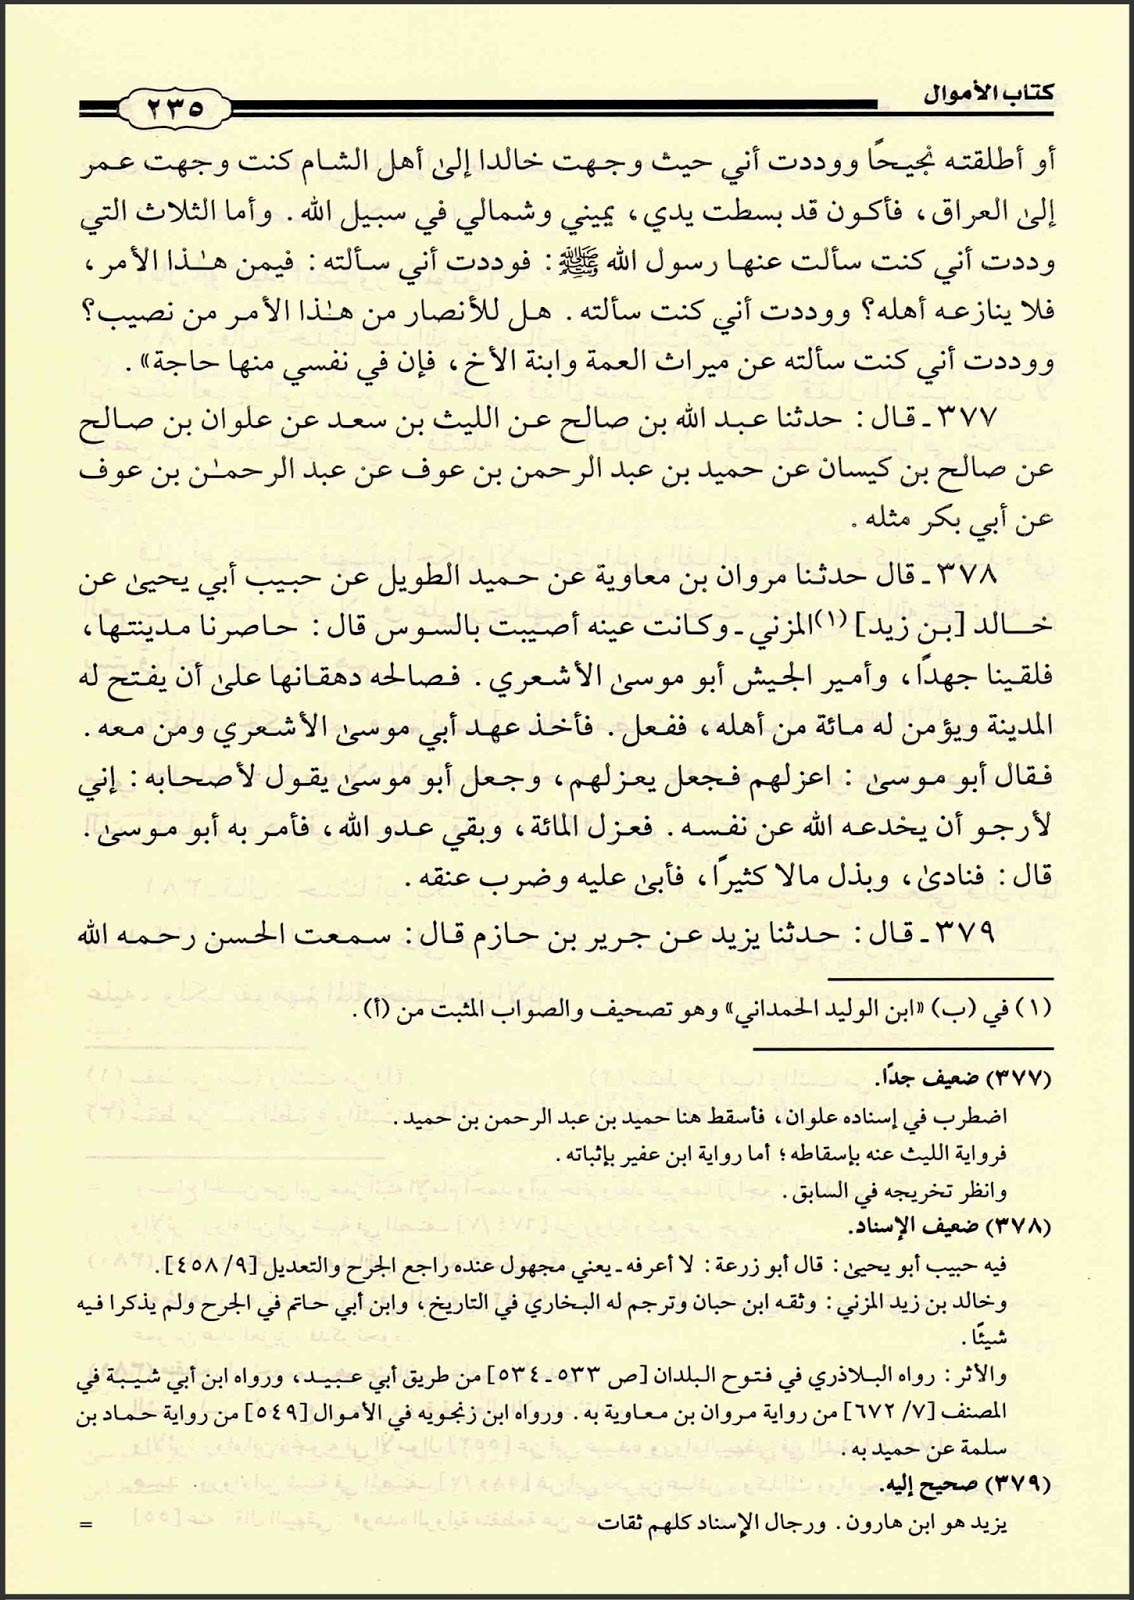 كتاب الأموال
٢٣٥
أو أطلقته نجيحًا ووددت أني حيث وجهت خالدا إلىٰ أهل الشام كنت وجهت عمر
إلىٰ العراق، فأكون قد بسطت يدي، يميني وشمالي في سبيل الله. وأما الثلاث التي
وددت أني كنت سألت عنها رسول الله ﷺ: فوددت أني سألته: فيمن هـٰذا الأمر،
فلا ينازعه أهله؟ ووددت أني كنت سألته. هل للأنصار من هـٰذا الأمر من نصيب؟
ووددت أني كنت سألته عن ميراث العمة وابنة الأخ، فإن في نفسي منها حاجة».
٣٧٧ ـ قال: حدثنا عبد الله بن صالح عن الليث بن سعد عن علوان بن صالح
عن صالح بن كيسان عن حميد بن عبد الرحمن بن عوف عن عبد الرحمـٰن بن عوف
عن أبي بكر مثله.
٣٧٨ ـ قال حدثنا مروان بن معاوية عن حميد الطويل عن حبيب أبي يحيىٰ عن
خالد [بن زيد] (١) المزني ـ وكانت عينه أصيبت بالسوس قال: حاصرنا مدينتها،
فلقينا جهدًا، وأمير الجيش أبو موسىٰ الأشعري. فصالحه دهقانها علىٰ أن يفتح له
المدينة ويؤمن له مائة من أهله، ففعل. فأخذ عهد أبي موسىٰ الأشعري ومن معه.
فقال أبو موسىٰ: اعزلهم فجعل يعزلهم، وجعل أبو موسىٰ يقول لأصحابه: إني
لأرجو أن يخدعه الله عن نفسه. فعزل المائة، وبقي عدو الله، فأمر به أبو موسىٰ.
قال: فنادىٰ، وبذل مالا كثيرًا، فأبىٰ عليه وضرب عنقه.
٣٧٩ ـ قال: حدثنا يزيد عن جرير بن حازم قال: سمعت الحسن رحمه الله
(١) في (ب) «ابن الوليد الحمداني» وهو تصحيف والصواب المثبت من (أ).
(٣٧٧) ضعيف جدًا.
اضطرب في إسناده علوان، فأسقط هنا حميد بن عبد الرحمن بن حميد.
فرواية الليث عنه بإسقاطه؛ أما رواية ابن عفير بإثباته.
وانظر تخريجه في السابق.
(٣٧٨) ضعيف الإسناد.
فيه حبيب أبو يحيىٰ: قال أبو زرعة: لا أعرفه ـ يعني مجهول عنده راجع الجرح والتعديل [٩/ ٤٥٨].
وخالد بن زيد المزني: وثقه ابن حبان وترجم له البخاري في التاريخ، وابن أبي حاتم في الجرح ولم يذكرا فيه
شيئًا.
والأثر: رواه البلاذري في فتوح البلدان [ص ٥٣٣ ـ ٥٣٤] من طريق أبي عبيد، ورواه ابن أبي شيبة في
المصنف [٧/ ٦٧٢] من رواية مروان بن معاوية به. ورواه ابن زنجويه في الأموال [٥٤٩] من رواية حماد بن
سلمة عن حميد به.
(٣٧٩) صحيح إليه.
يزيد هو ابن هارون. ورجال الإسناد كلهم ثقات
=